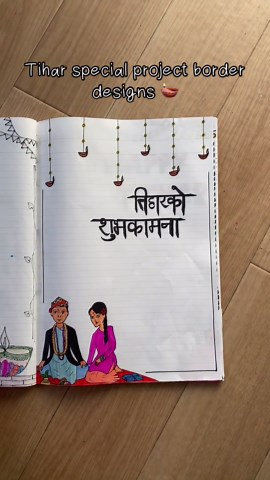 Tihar special project border
designs 🪔
तिहारको
शुभकामना